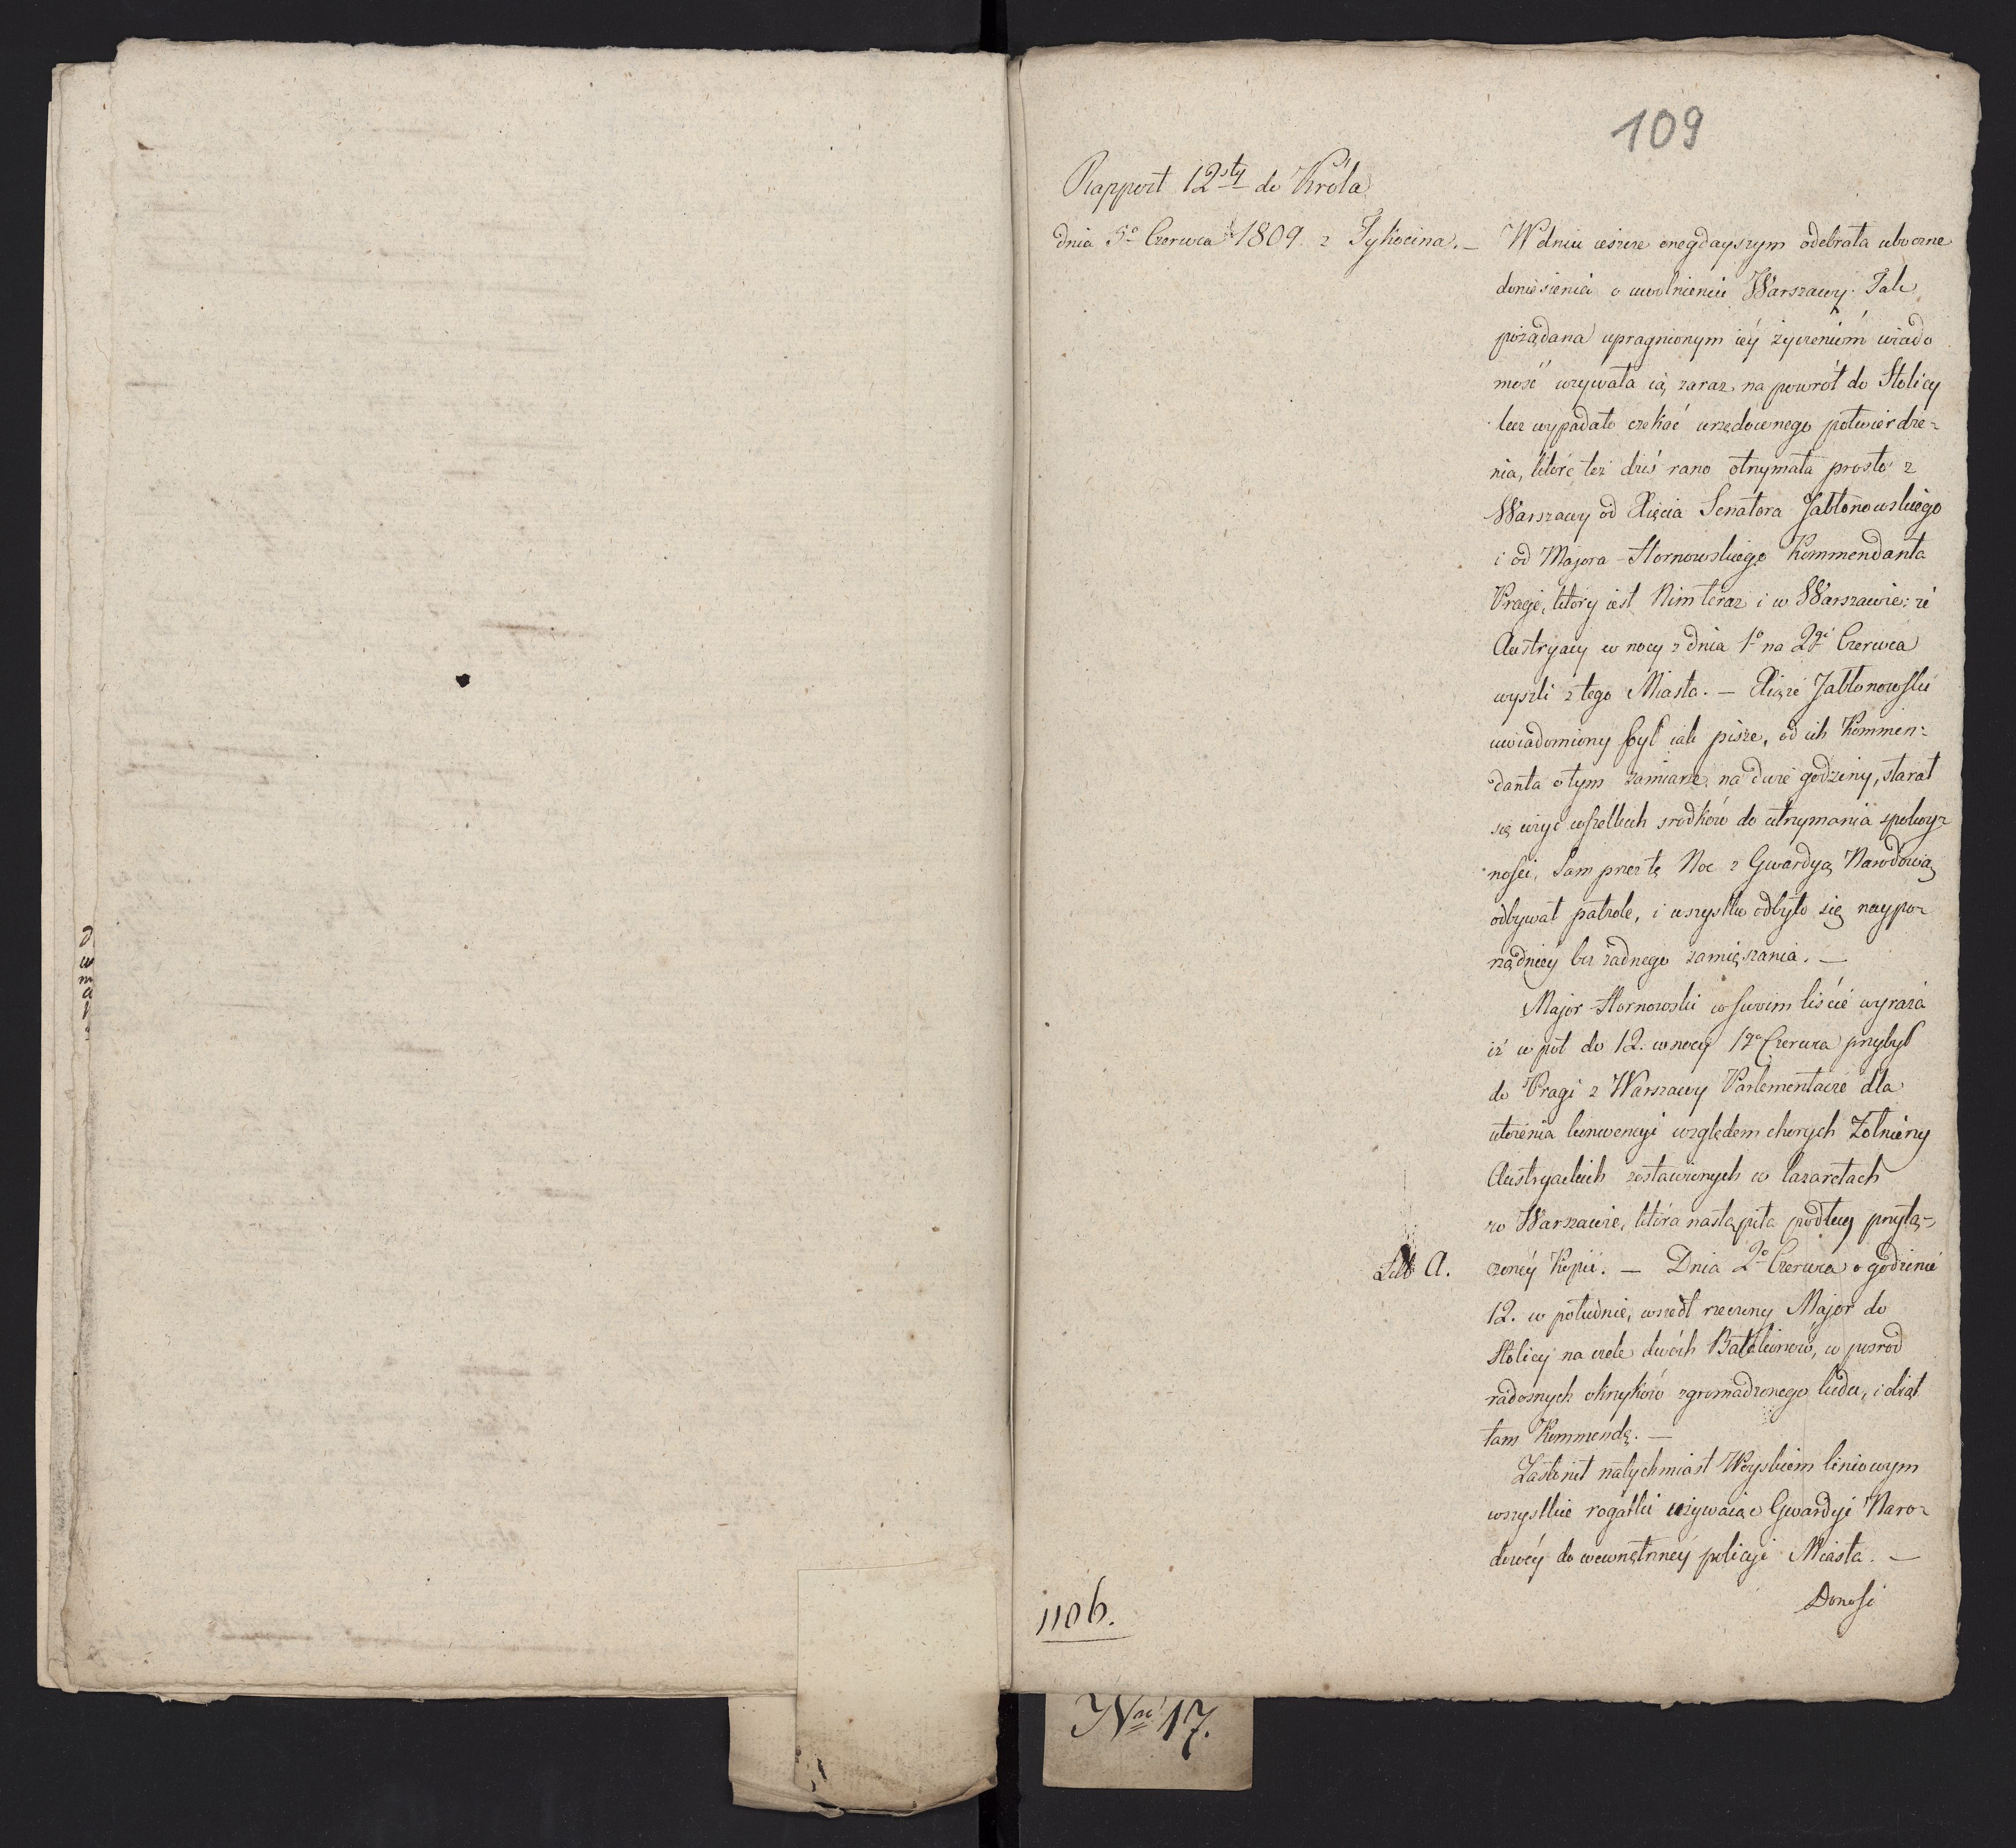 109
Rapport 12sty do Króla
dnia 5o Czerwca 1809. z Tykocina. —
W dniu ieszcze onegdayszym odebrała uboczne
doniesienia o uwolnieniu Warszawy. Tak
pożądana upragnionym iéy życzeniom wiado
mość wzywała ią zaraz na powrót do Stolicy
lecz wypadało czekać urzędownego potwierdze=
nia, które też dziś rano otrzymała prosto z
Warszawy od Xięcia Senatora Jabłonowskiego
i od Majora Hornowskiego Kommendanta
Pragi, który iest Nim teraz i w Warszawie; że
Austryacy w nocy z dnia 1o na 2gi Czerwca
wyszli z tego Miasta. — Xiąże Jabłonowski
uwiadomiony był iak pisze, od ich Kommen=
danta o tym zamiarze na dwie godziny, starał
się użyć wszelkich srodków do utrzymania spokoy=
ności, Sam przez tę Noc z Gwardyą Narodową
odbywał patrole, i wszystko odbyło się naypo=
rządniey bez żadnego zamięszania. —
Major Hornowski w swoim liście wyraża
iż w pół do 12. w nocy 1go Czerwca przybył
do Pragi z Warszawy Parlementarz dla
ułożenia konwencyi względem chorych Żołnierzy
Austryackich zostawionych w lazaretach
w Warszawie, która nastąpiła podług przyłą=
Litt A.
czonéy Kopii. — Dnia 2o Czerwca o godzinie
12. w południe, wszedł rzeczony Major do
Stolicy na czele dwóch Batalionów, w pośród
radosnych okrzyków zgromadzonego ludu, i obiął
tam Kommendę. —
Zasłonił natychmiast Woyskiem liniowym
wszystkie rogatki używaiąc Gwardyi Naro=
dowéy do wewnętrznéy policyi Miasta. —
Donosi
1106.
Nro 17.